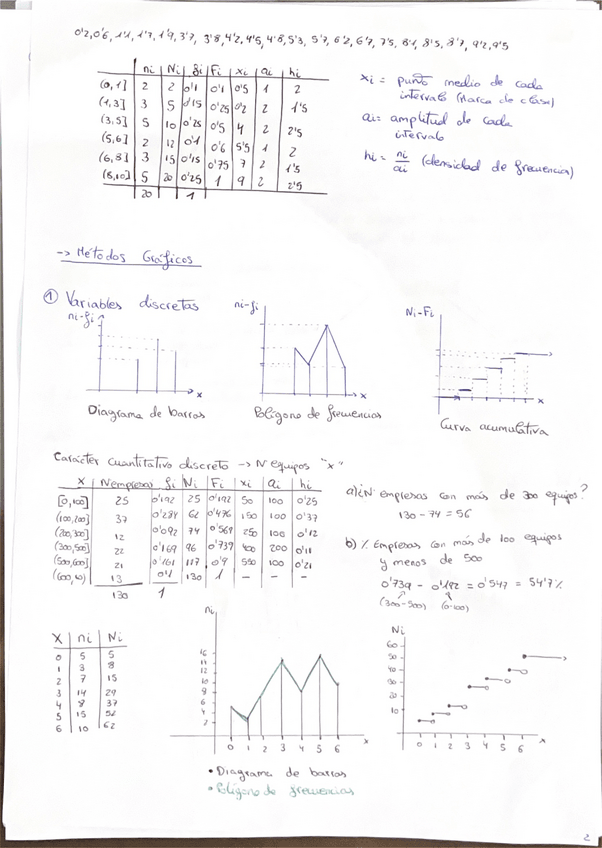 0'2, 0'6, 1'1, 1'7, 1'9, 3'7, 3'8, 4'2, 4'5, 4'8, 5'3, 5'7, 6'2, 6'7, 7'5, 8'1, 8'5, 8'7, 9'2, 9'5
ni Ni fi Fi xi ai hi
(0,1] 2 2 0'1 0'1 0'5 1 2
(1,3] 3 5 0'15 0'25 0'2 2 1'5
(3,5] 5 10 0'25 0'5 4 2 2'5
(5,6] 2 12 0'1 0'6 5'5 1 2
(6,8] 3 15 0'15 0'75 7 2 1'5
(8,10] 5 20 0'25 1 9 2 2'5
20 1
xi = punto medio de cada
intervalo (Marca de clase)
ai = amplitud de cada
intervalo
hi = ni/ai (densidad de frecuencia)
-> Métodos Gráficos
① Variables discretas
ni-fi
x
Diagrama de barras
ni-fi
x
Polígono de frecuencias
Ni-Fi
x
Curva acumulativa
Carácter cuantitativo discreto -> Nº equipos "x"
X N empresas fi Ni Fi xi ai hi
[0,100] 25 0'192 25 0'192 50 100 0'25
(100,200] 37 0'284 62 0'476 150 100 0'37
(200,300] 12 0'092 74 0'569 250 100 0'12
(300,500] 22 0'169 96 0'739 400 200 0'11
(500,600] 21 0'161 117 0'9 550 100 0'21
(600,∞) 13 0'1 130 1 - - -
130 1
a) ¿Nº empresas con más de 300 equipos?
130 - 74 = 56
b) % Empresas con más de 100 equipos
y menos de 500
0'739 - 0'192 = 0'547 = 54'7%
(300-500) (0-100)
X ni Ni
0 5 5
1 3 8
2 7 15
3 14 29
4 8 37
5 15 52
6 10 62
ni
16
14
12
10
8
6
4
2
0 1 2 3 4 5 6
x
• Diagrama de barras
• Polígono de frecuencias
Ni
60
50
40
30
20
10
0 1 2 3 4 5 6
x
2